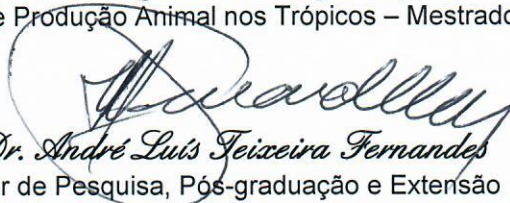 e Produção Animal nos Trópicos – Mestrado
Dr. André Luís Teixeira Fernandes
r de Pesquisa, Pós-graduação e Extensão